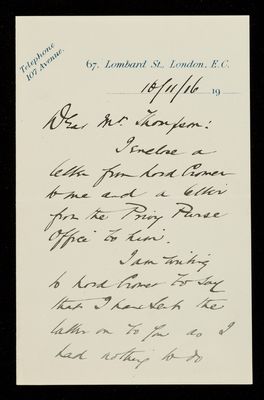 Telephone
107 Avenue.
67, Lombard St., London, E.C.
18/11/16 19
Dear Mr. Thompson:
I enclose a
letter from Lord Cromer
to me and a letter
from the Privy Purse
Office to him.
I am writing
to Lord Cromer to say
that I have sent the
latter on to you as I
had nothing to do